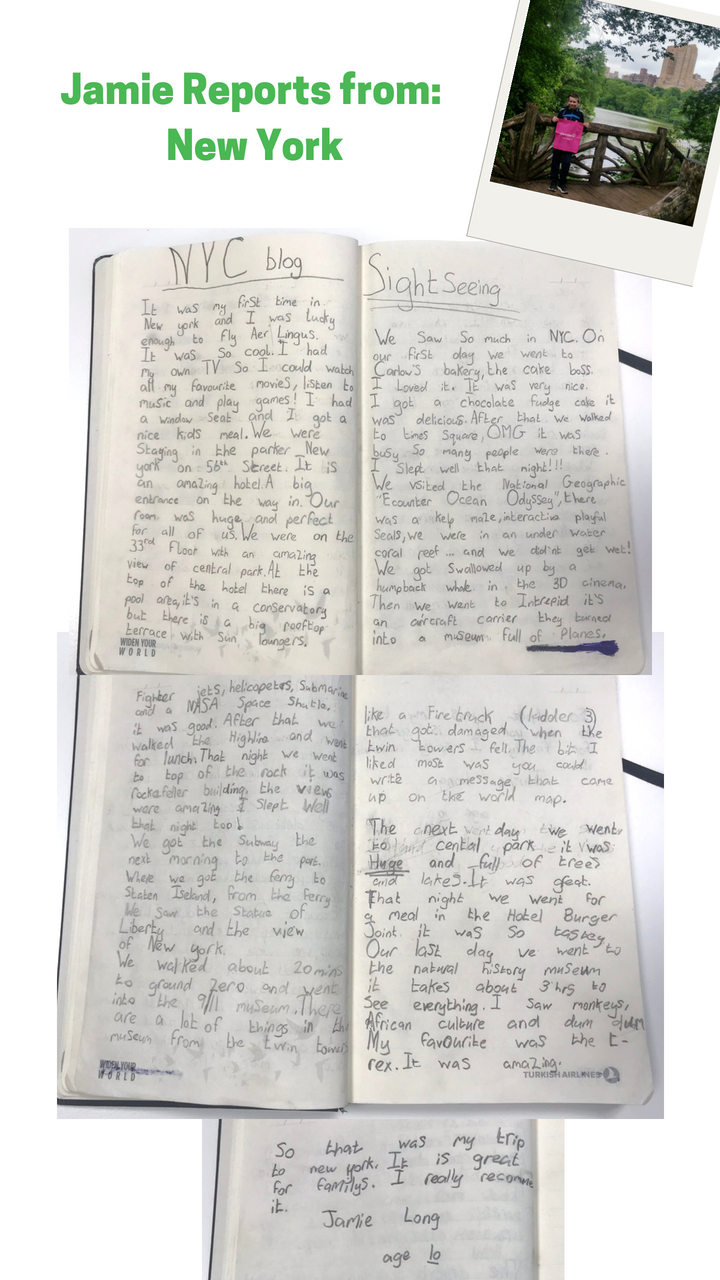 Jamie Reports from:
New York
NYC blog
It was my first time in
New york and I was lucky
enough to fly Aer Lingus.
It was so cool. I had
my own TV so I could watch
all my favourite movies, listen to
music and play games! I had
a window seat and I got a
nice kids meal. We were
Staging in the parker New
york on 56th Street. It is
an amazing hotel. A big
entrance on the way in. Our
room was huge and perfect
for all of us. We were on the
33rd floor with an amazing
view of central park. At the
top of the hotel there is a
pool area, it's in a conservatory
but there is a big rooftop
terrace with Sun loungers.
WIDEN YOUR
WORLD
Sight Seeing
We Saw So much in NYC. On
our first day we went to
Carlow's bakery, the cake boss.
I Loved it. It was very nice.
I got a chocolate fudge cake it
was delicious. After that we walked
to times Square, OMG it was
busy So many people were there.
I Slept well that night!!!
We vsited the National Geographic
"Ecounter Ocean Odyssey", there
was a kelp maze, interactive playful
Seals, we were in an under water
coral reef ... and we did'nt get wet!
We got Swallowed up by a
humpback whale in the 3D cinema.
Then we went to Intrepid it's
an aircraft carrier they turned
into a museum full of Planes,
Fighter jets, helicopeters, Submarine
and a NASA Space Shutle,
it was good. After that we
walked the Highline and went
for lunch. That night we went
to top of the rock it was
rockafeller building, the views
were amazing I Slept Well
that night too!
We got the Subway the
next morning to the port.
Where we got the ferry to
Staten Iseland, from the ferry
We Saw the Statue of
Liberty and the view
of New york.
We walked about 20 mins
to ground Zero and went
into the 9/11 museum. There
are a lot of things in the
museum from the twin towers
WIDEN YOUR
WORLD
like a Firetruck (ladder 3)
that got damaged when the
twin towers fell. The bit I
liked most was you could
write a message that came
up on the world map.
The next day we went
to cental park it was
Huge and full of trees
and lakes. It was great.
That night we went for
a meal in the Hotel Burger
Joint it was So tastey
Our last day we went to
the natural history museum
it takes about 3 hrs to
See everything. I Saw monkeys,
African culture and dum dum
My favourite was the t-
rex. It was amazing.
TURKISH AIRLINES
So that was my trip
to new york. It is great
for familys. I really
it.
Jamie Long
age 10